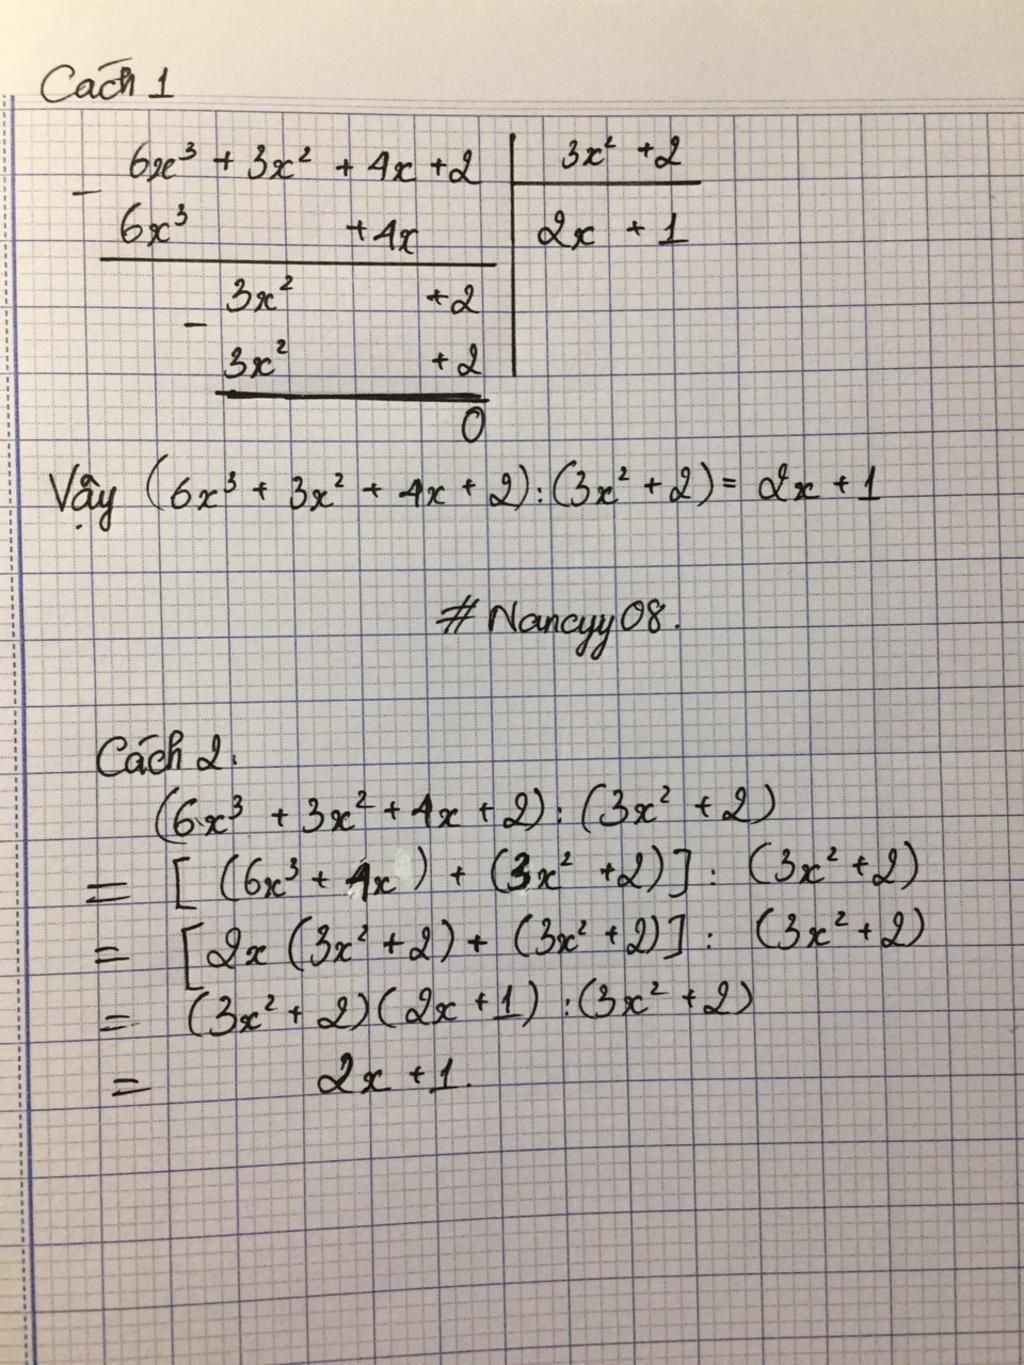 Cách 1
6x³ + 3x² + 4x + 2 | 3x² + 2
−
6x³ + 4x | 2x + 1
3x² + 2
−
3x² + 2
0
Vậy (6x³ + 3x² + 4x + 2) : (3x² + 2) = 2x + 1
# Nancyy08.
Cách 2.
(6x³ + 3x² + 4x + 2) : (3x² + 2)
= [ (6x³ + 4x ) + (3x² + 2)] : (3x² + 2)
= [2x (3x² + 2) + (3x² + 2)] : (3x² + 2)
= (3x² + 2)(2x + 1) : (3x² + 2)
= 2x + 1.